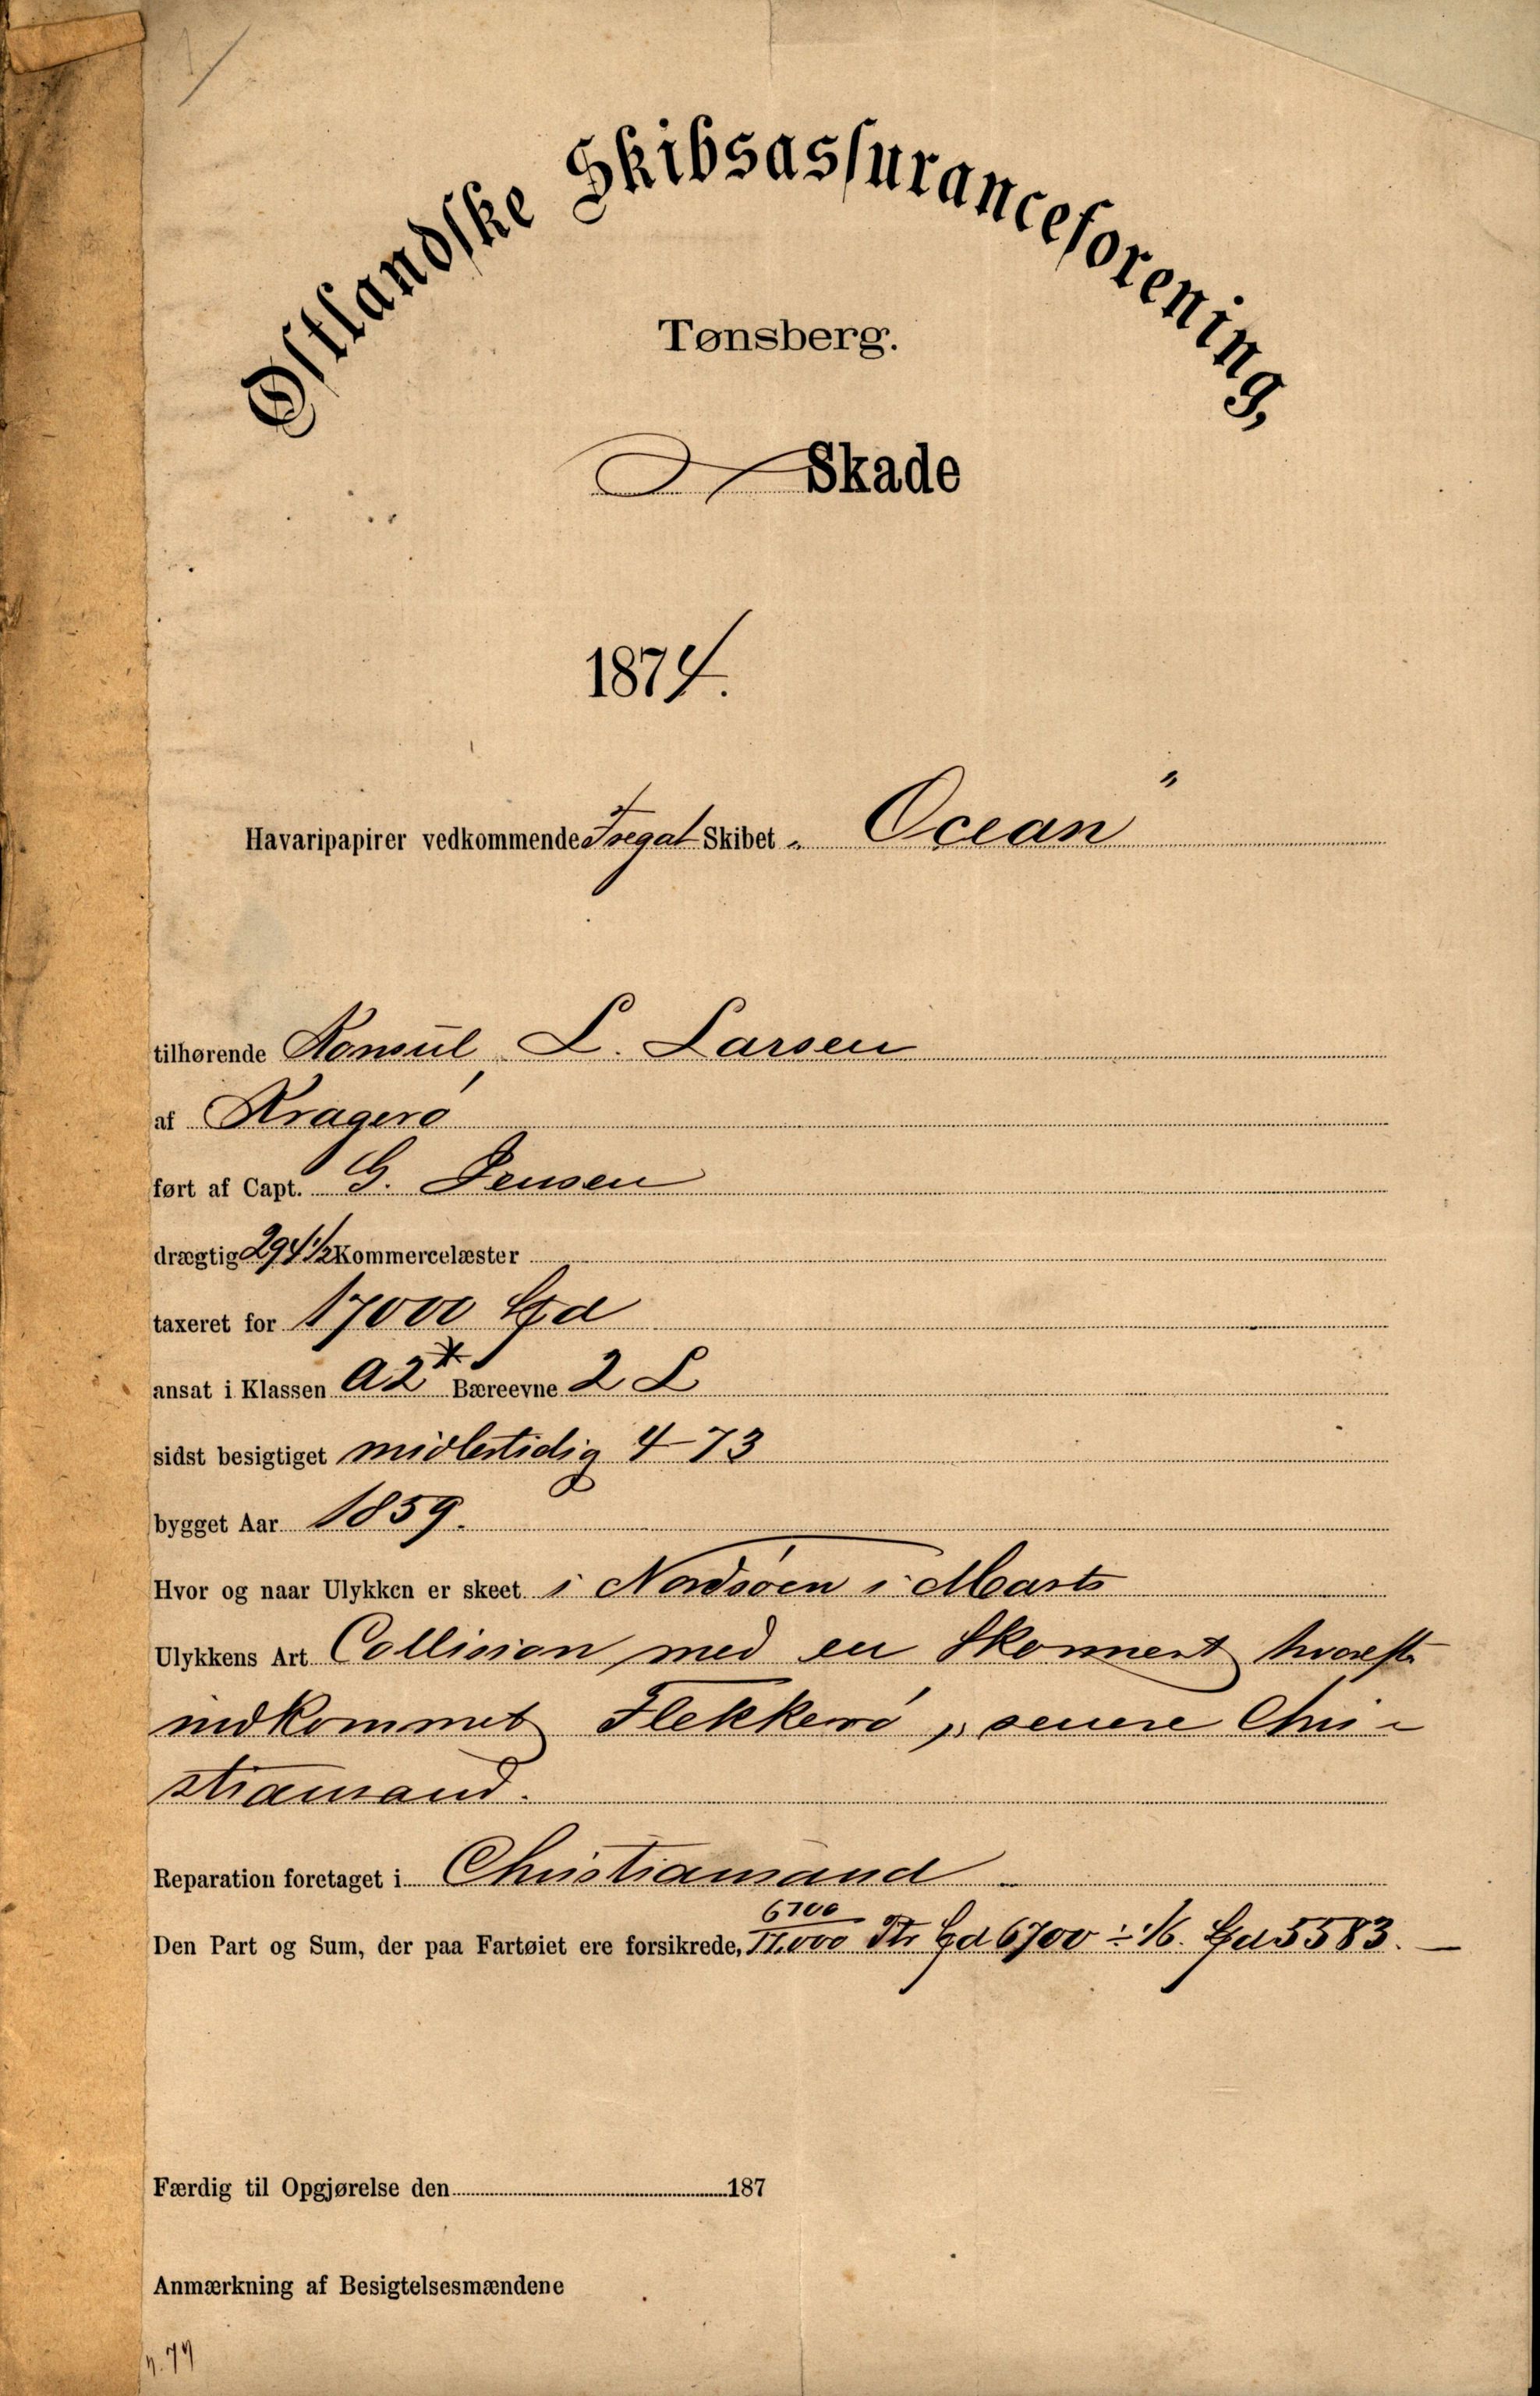 Østlandske Skibsassuranceforening,
Tønsberg.
Skade
1874.
Havaripapirer vedkommende Fregat Skibet „Ocean"
tilhørende Konsul L. Larsen
af Kragerø
ført af Capt. G. Jensen
drægtig 294 1/2 Kommercelæster
taxeret for 17000 Spd
ansat i Klassen A2* Bæreevne 2 L
sidst besigtiget midlertidig 4-73
bygget Aar 1859.
Hvor og naar Ulykken er skeet i Nordsøen i Marts
Ulykkens Art Collision med en Skonnert hvorefter
indkommet Flekkerø, senere Chri-
stiansand.
Reparation foretaget i Christiansand
Den Part og Sum, der paa Fartøiet ere forsikrede, 6700/17,000 Ptr Spd 6700 ÷ 1/6. Spd 5583.—
Færdig til Opgjørelse den 187
Anmærkning af Besigtelsesmændene